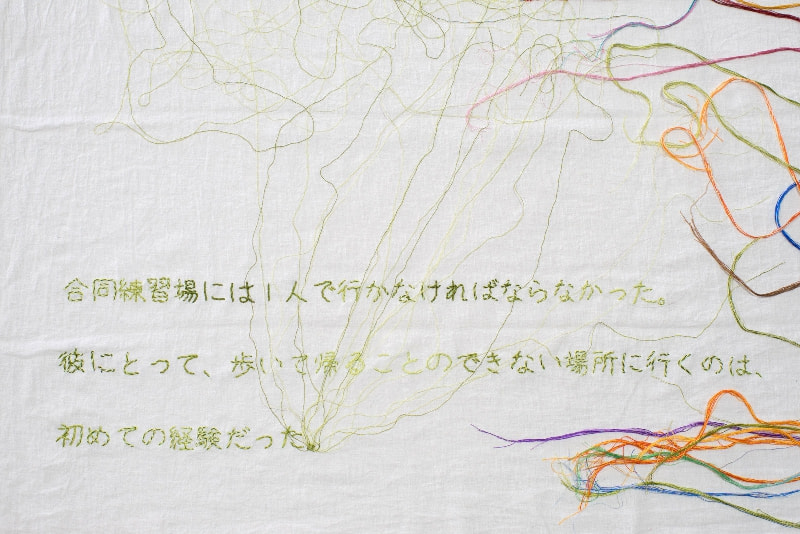 合同練習場には1人で行かなければならなかった。
彼にとって、歩いて帰ることのできない場所に行くのは、
初めての経験だった。